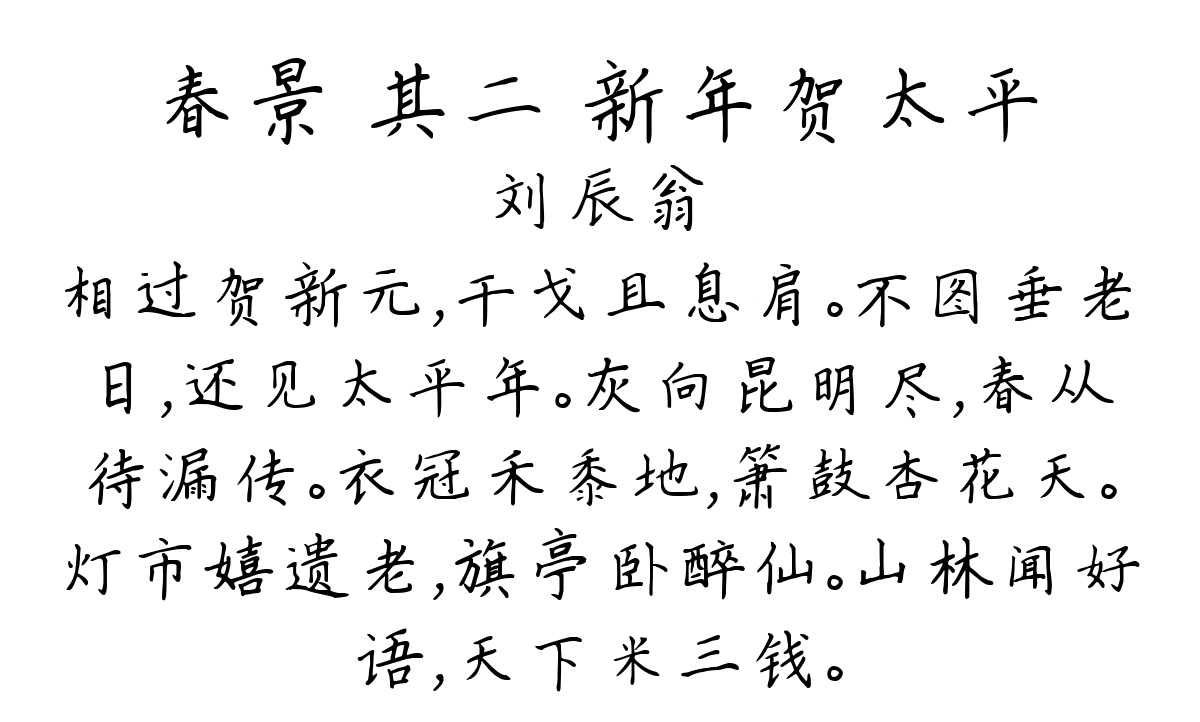 春景 其二 新年贺太平
刘辰翁
相过贺新元,干戈且息肩。不图垂老
日,还见太平年。灰向昆明尽,春从
待漏传。衣冠禾黍地,箫鼓杏花天。
灯市嬉遗老,旗亭卧醉仙。山林闻好
语,天下米三钱。